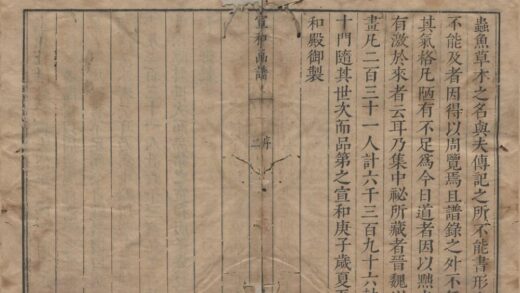 蟲魚草木之名與夫傳記之所不能書形
不能及者因得以周覽焉且譜錄之外不
其氣格凡陋有不足爲今日道者因以黜
有激於來者云耳乃集中祕所藏者晉魏
畫凡二百三十一人計六千三百九十六軸
十門隨其世次而品第之宣和庚子歲夏
和殿御製
宣和画譜
序
二